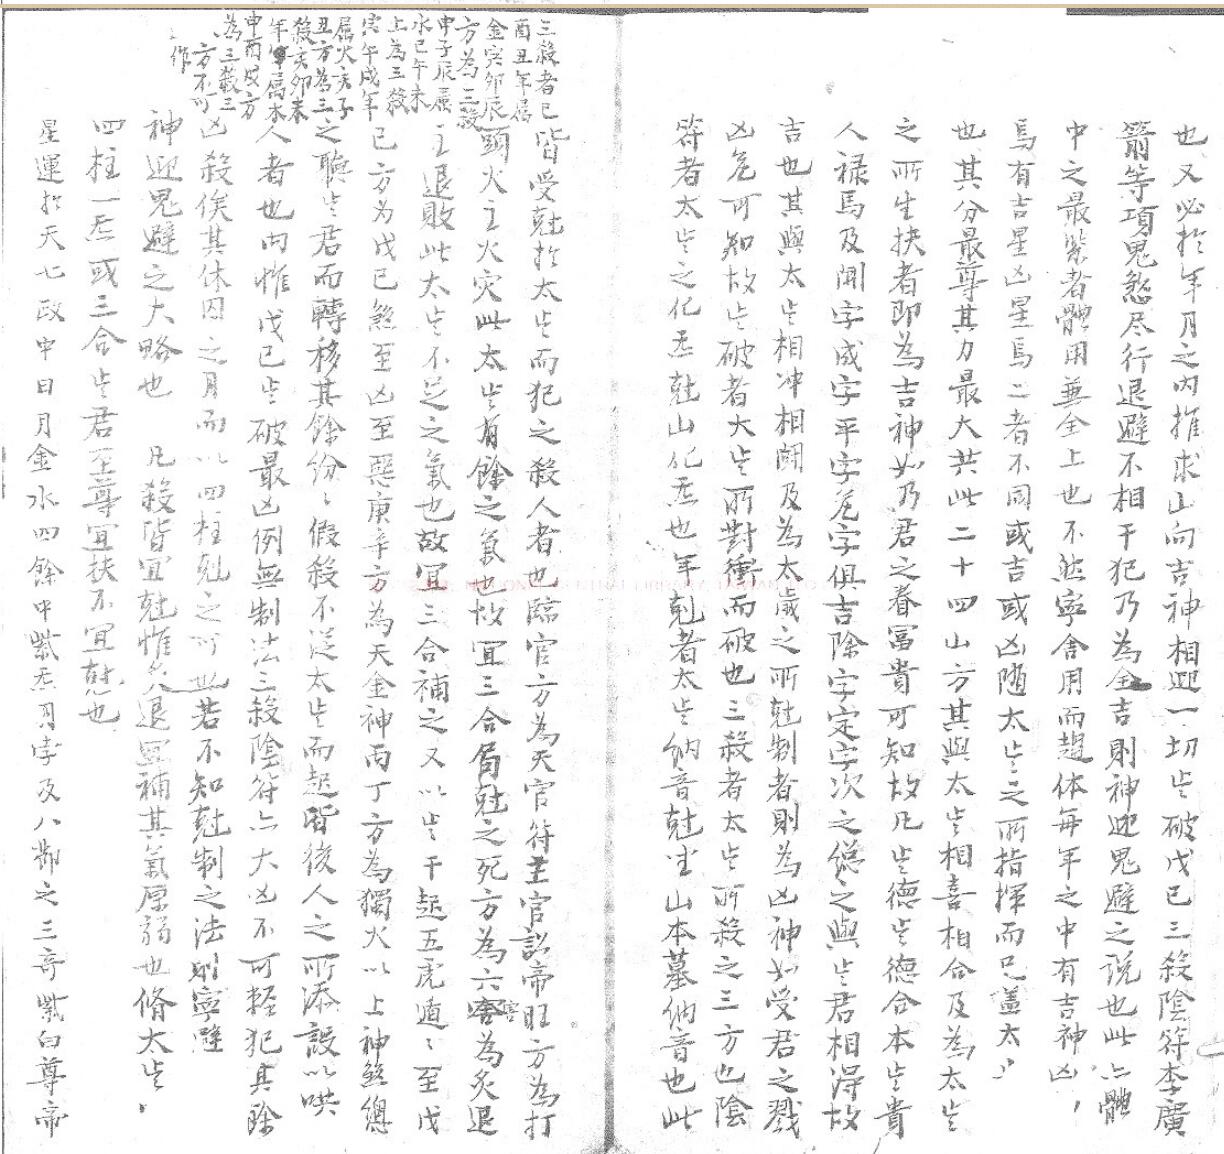 也又必於年月之內推求山向吉神相迎一切歲破戊己三殺陰符李廣
箭等項鬼煞尽行退避不相干犯乃為全吉則神迎鬼避之說也此亦體
中之最緊者體用兼全上也不然寧舍用而趨体每年之中有吉神凶
馬有吉星凶星馬二者不同或吉或凶随太歲之所指揮而已蓋太
也其分最尊其力最大共此二十四山方其與太歲相喜相合及為太歲
之所生扶者即為吉神如乃君之眷冨貴可知故凡歲德歲德合本歲貴
人禄馬及開字成字平字危字俱吉除字定字次之總之與歲君相得故
吉也其與太歲相冲相鬪及為太歲之所尅制者則為凶神如受君之戮
凶危可知故歲破者太歲所對衝而破也三殺者太歲所殺之三方也陰
符者太歲之化炁尅山化炁也年尅者太歲納音尅坐山本墓納音也此
皆受尅於太歲而犯之殺人者也臨官方為天官符主官訟帝旺方為打
頭火主火灾此太歲有餘之氣也故宜三合局尅之死方為六害為炙退
主退敗此太歲不足之氣也故宜三合補之又以歲干起五虎遁遁至戊
己方为戊己煞至凶至惡庚辛方為天金神丙丁方為獨火以上神煞總
之聽歲君而轉移其餘紛紛假殺不從太歲而起皆後人之所添設以哄
人者也內惟戊己歲破最凶例無制法三殺陰符亦大凶不可輕犯其餘
凶殺俟其休囚之月而以四柱尅之可也若不知尅制之法則寧避
神迎鬼避之大略也 凡殺皆宜尅惟炙退宜補其氣原弱也脩太歲
四柱一炁或三合歲君至尊宜扶不宜尅也
星運於天七政中日月金水四餘中紫炁月孛及八節之三奇紫白尊帝
三殺者巳
酉丑年屬
金寅卯辰
方為三殺
申子辰屬
水巳午未
上為三殺
寅午戌年
屬火亥子
丑方為三
殺亥卯未
年屬木
申酉戌方
為三殺三
方不可
作